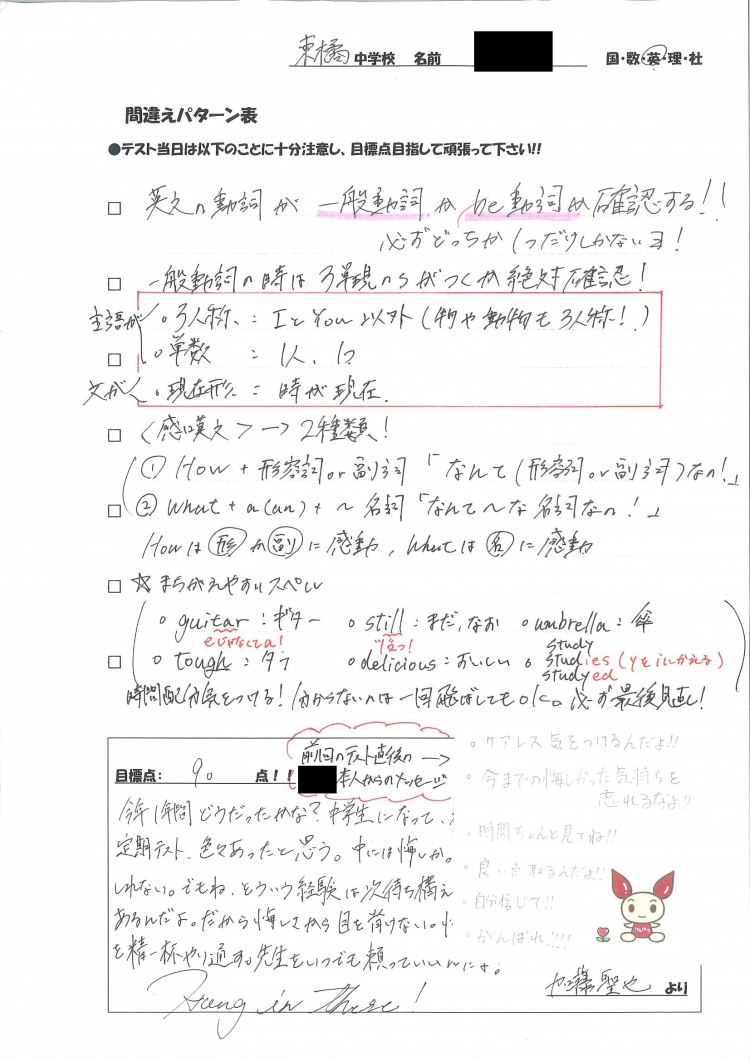 東橘中学校 名前 国・数・英・理・社
間違えパターン表
●テスト当日は以下のことに十分注意し、目標点目指して頑張って下さい!!
□ 英文の動詞が 一般動詞か be動詞か確認する!!
必ずどっちか1つだけしかないヨ!
□ 一般動詞の時は3単現のsがつくか絶対確認!
主語が 。3人称 : IとYou以外(物や動物も3人称!)
□ 。単数 : 1人、1つ
文が 。現在形 = 時が現在.
□ <感嘆文> → 2種類!
① How + 形容詞or副詞「なんて(形容詞or副詞)なの!」
□ ② What + a(an) + ~ 名詞「なんて~な名詞なの!」
Howは形か副に感動, Whatは名に感動
□ ☆まちがえやすいスペル
。guitar : ギター 。still : まだ, なお 。umbrella : 傘
eじゃなくてa! lは2つ! study
□ 。tough : タフ 。delicious : おいしい 。studies (yをiにかえる)
studyed
時間配分気をつける! 分からないのは一回飛ばしてもok。必ず最後見直し!
前回のテスト直後の →
本人からのメッセージ
目標点: 90 点!!
。ケアレス気をつけるんだよ!!
。今までの悔しかった気持ちを
忘れるなよ!!
。時間ちゃんと見てね!!
。良い点取るんだよ!!
。自分信じて!!
。がんばれ!!!!
今年1年間どうだったかな?中学生になって、
定期テスト、色々あったと思う。中には悔しか
しれない。でもね、そういう経験は次待ち構え
あるんだよ。だから悔しさから目を背けない。
を精一杯やり通す。先生をいつでも頼っていいんだよ。
Hang in there!
加藤聖也 より